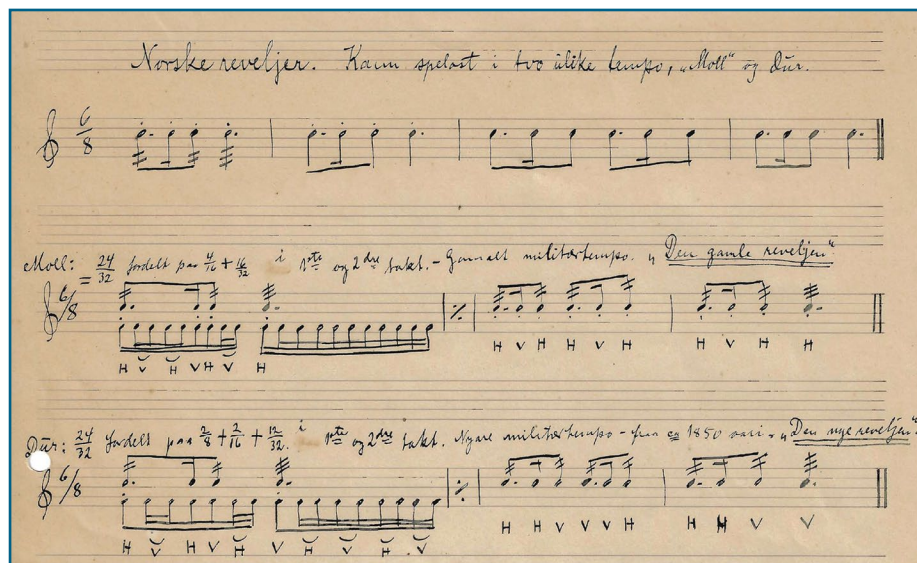 Norske reveljer. Kann spelast i tvo ulike tempo, „Moll“ og dur.
6/8
Moll: 24/32 fordelt paa 4/16 + 16/32 i 1ste og 2dre takt. - Gamalt militærtempo. „Den gamle reveljen“
6/8
H V H V H V H H V H H V H H V H H
Dur: 24/32 fordelt paa 2/8 + 2/16 + 12/32 i 1ste og 2dre takt. Nyare militærtempo - fraa ca 1850 „Den nye reveljen“
6/8
H V H V H V H V H V H H V V V H H H V V